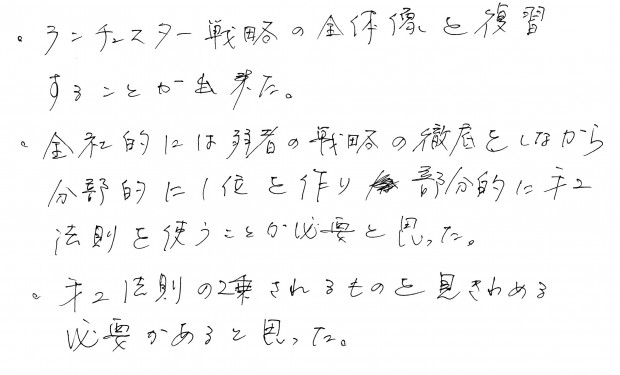 ・ランチェスター戦略の全体像を復習
することが出来た。
・全社的には弱者の戦略の徹底をしながら
分部的に1位を作り 部分的に第2
法則を使うことが必要と思った。
・第2法則の2乗されるものを見きわめる
必要があると思った。